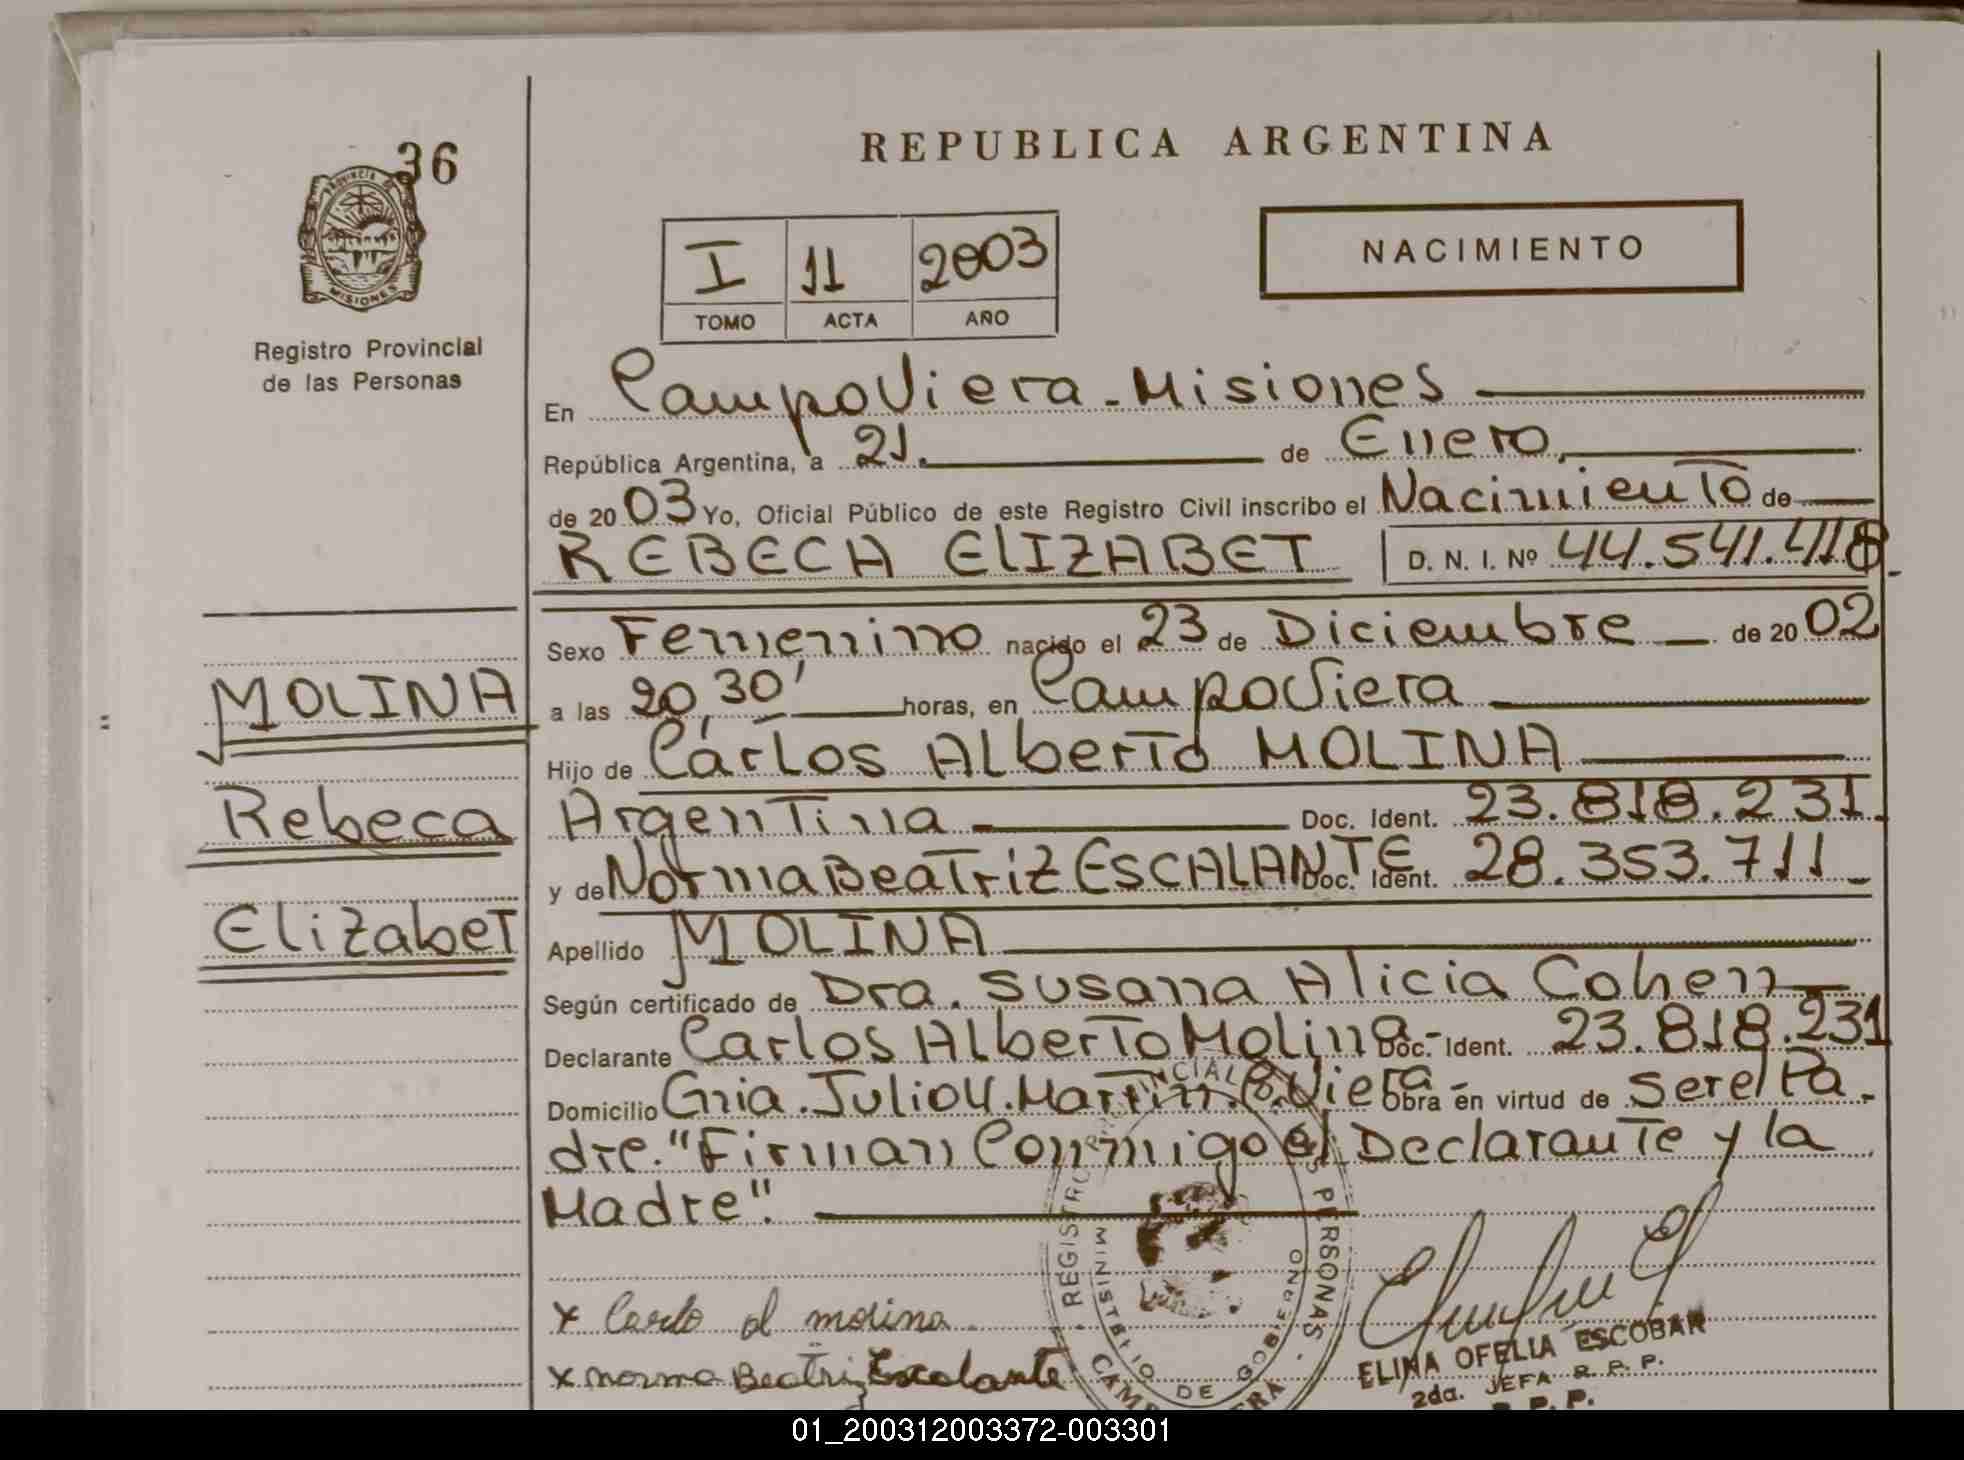 36
PROVINCIA DE
MISIONES
Registro Provincial
de las Personas
REPUBLICA ARGENTINA
NACIMIENTO
I 11 2003
TOMO ACTA AÑO
En Campo Viera - Misiones
República Argentina, a 21. de Enero,
de 2003 Yo, Oficial Público de este Registro Civil inscribo el Nacimiento de
REBECA ELIZABET D. N. I. Nº 44.541.418
Sexo Femenino nacido el 23 de Diciembre de 2002
MOLINA
a las 20,30' horas, en Campo Viera
Hijo de Carlos Alberto MOLINA
Rebeca
Argentina Doc. Ident. 23.818.231
y de Norma Beatriz ESCALANTE Doc. Ident. 28.353.711
Elizabet
Apellido MOLINA
Según certificado de Dra. Susana Alicia Cohen
Declarante Carlos Alberto Molina - Doc. Ident. 23.818.231
Domicilio Cnia. Julio U. Martin. C. Viera - Obra en virtud de ser el Pa-
dre. "Firman Conmigo el Declarante y la
Madre".
REGISTRO PROVINCIAL DE LAS PERSONAS
MINISTERIO DE GOBIERNO
CAMPO VIERA
x Carlo al molina
x norma Beatriz Escalante
ELINA OFELIA ESCOBAR
2da. JEFA R. P. P.
R. P. P.
01_200312003372-003301